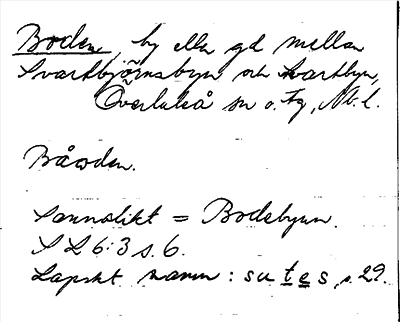 Boden, by eller gd mellan
Svartbjörnsbyn och Svartbyn,
Överluleå sn o. tg, Nb. l.
Båwden.
Sannolikt = Bodebyn.
SL 6:3 s. 6.
Lapskt namn: sutes, s. 29.